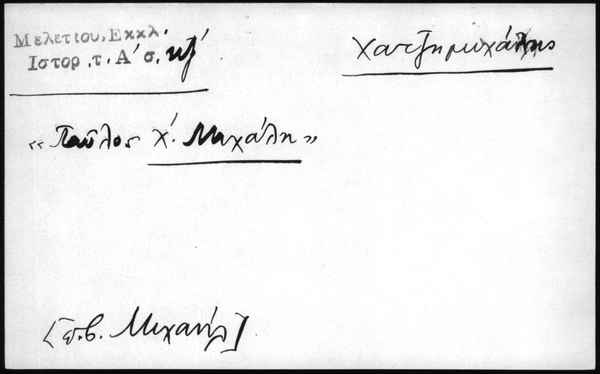 Μελετίου, Εκκλ.
Ιστορ. τ. Α' σ. κζ'
Χατζημιχάλης
«Παῦλος χ'. Μιχάλη»
[π.β. Μιχαήλ]